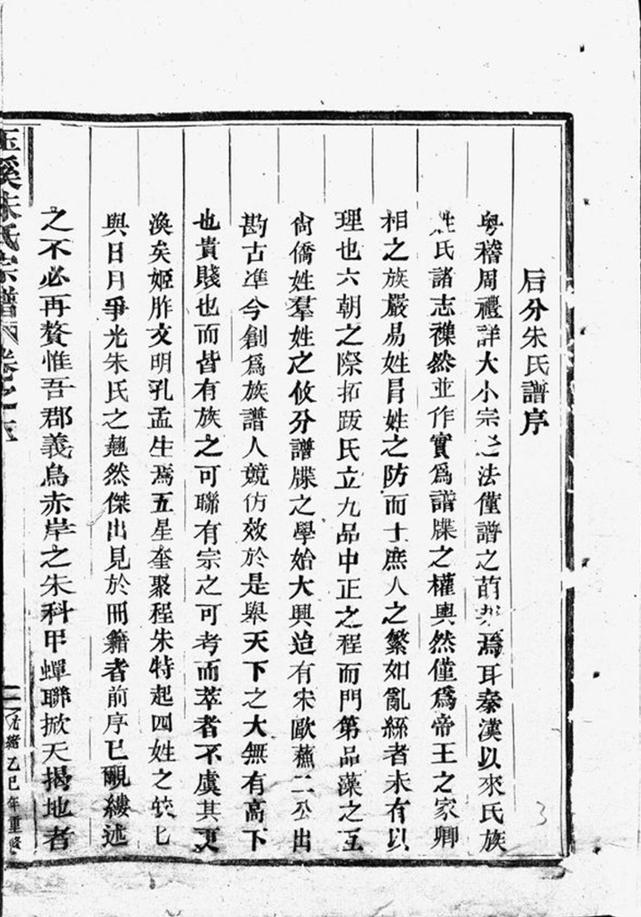 后分朱氏譜序
粵稽周禮詳大小宗之法僅譜之萌芽焉耳秦漢以來氏族
姓氏諸志襍然並作實爲譜牒之權輿然僅爲帝王之家卿
相之族嚴易姓冒姓之防而士庶人之繁如亂絲者未有以
理也六朝之際拓跋氏立九品中正之程而門第品藻之至
尙僑姓羣姓之攸分譜牒之學始大興迨有宋歐蘇二公出
斟古準今創爲族譜人競仿效於是舉天下之大無有高下
也貴賤也而皆有族之可聯有宗之可考而萃者不虞其更
渙矣姬胙文明孔孟生焉五星奎聚程朱特起四姓之
與日月爭光朱氏之翹然傑出見於冊籍者前序已覼縷述
之不必再贅惟吾郡義烏赤岸之朱科甲蟬聯掀天揭地者
玉溪朱氏宗譜 卷之
二 光緒乙巳年重修
3